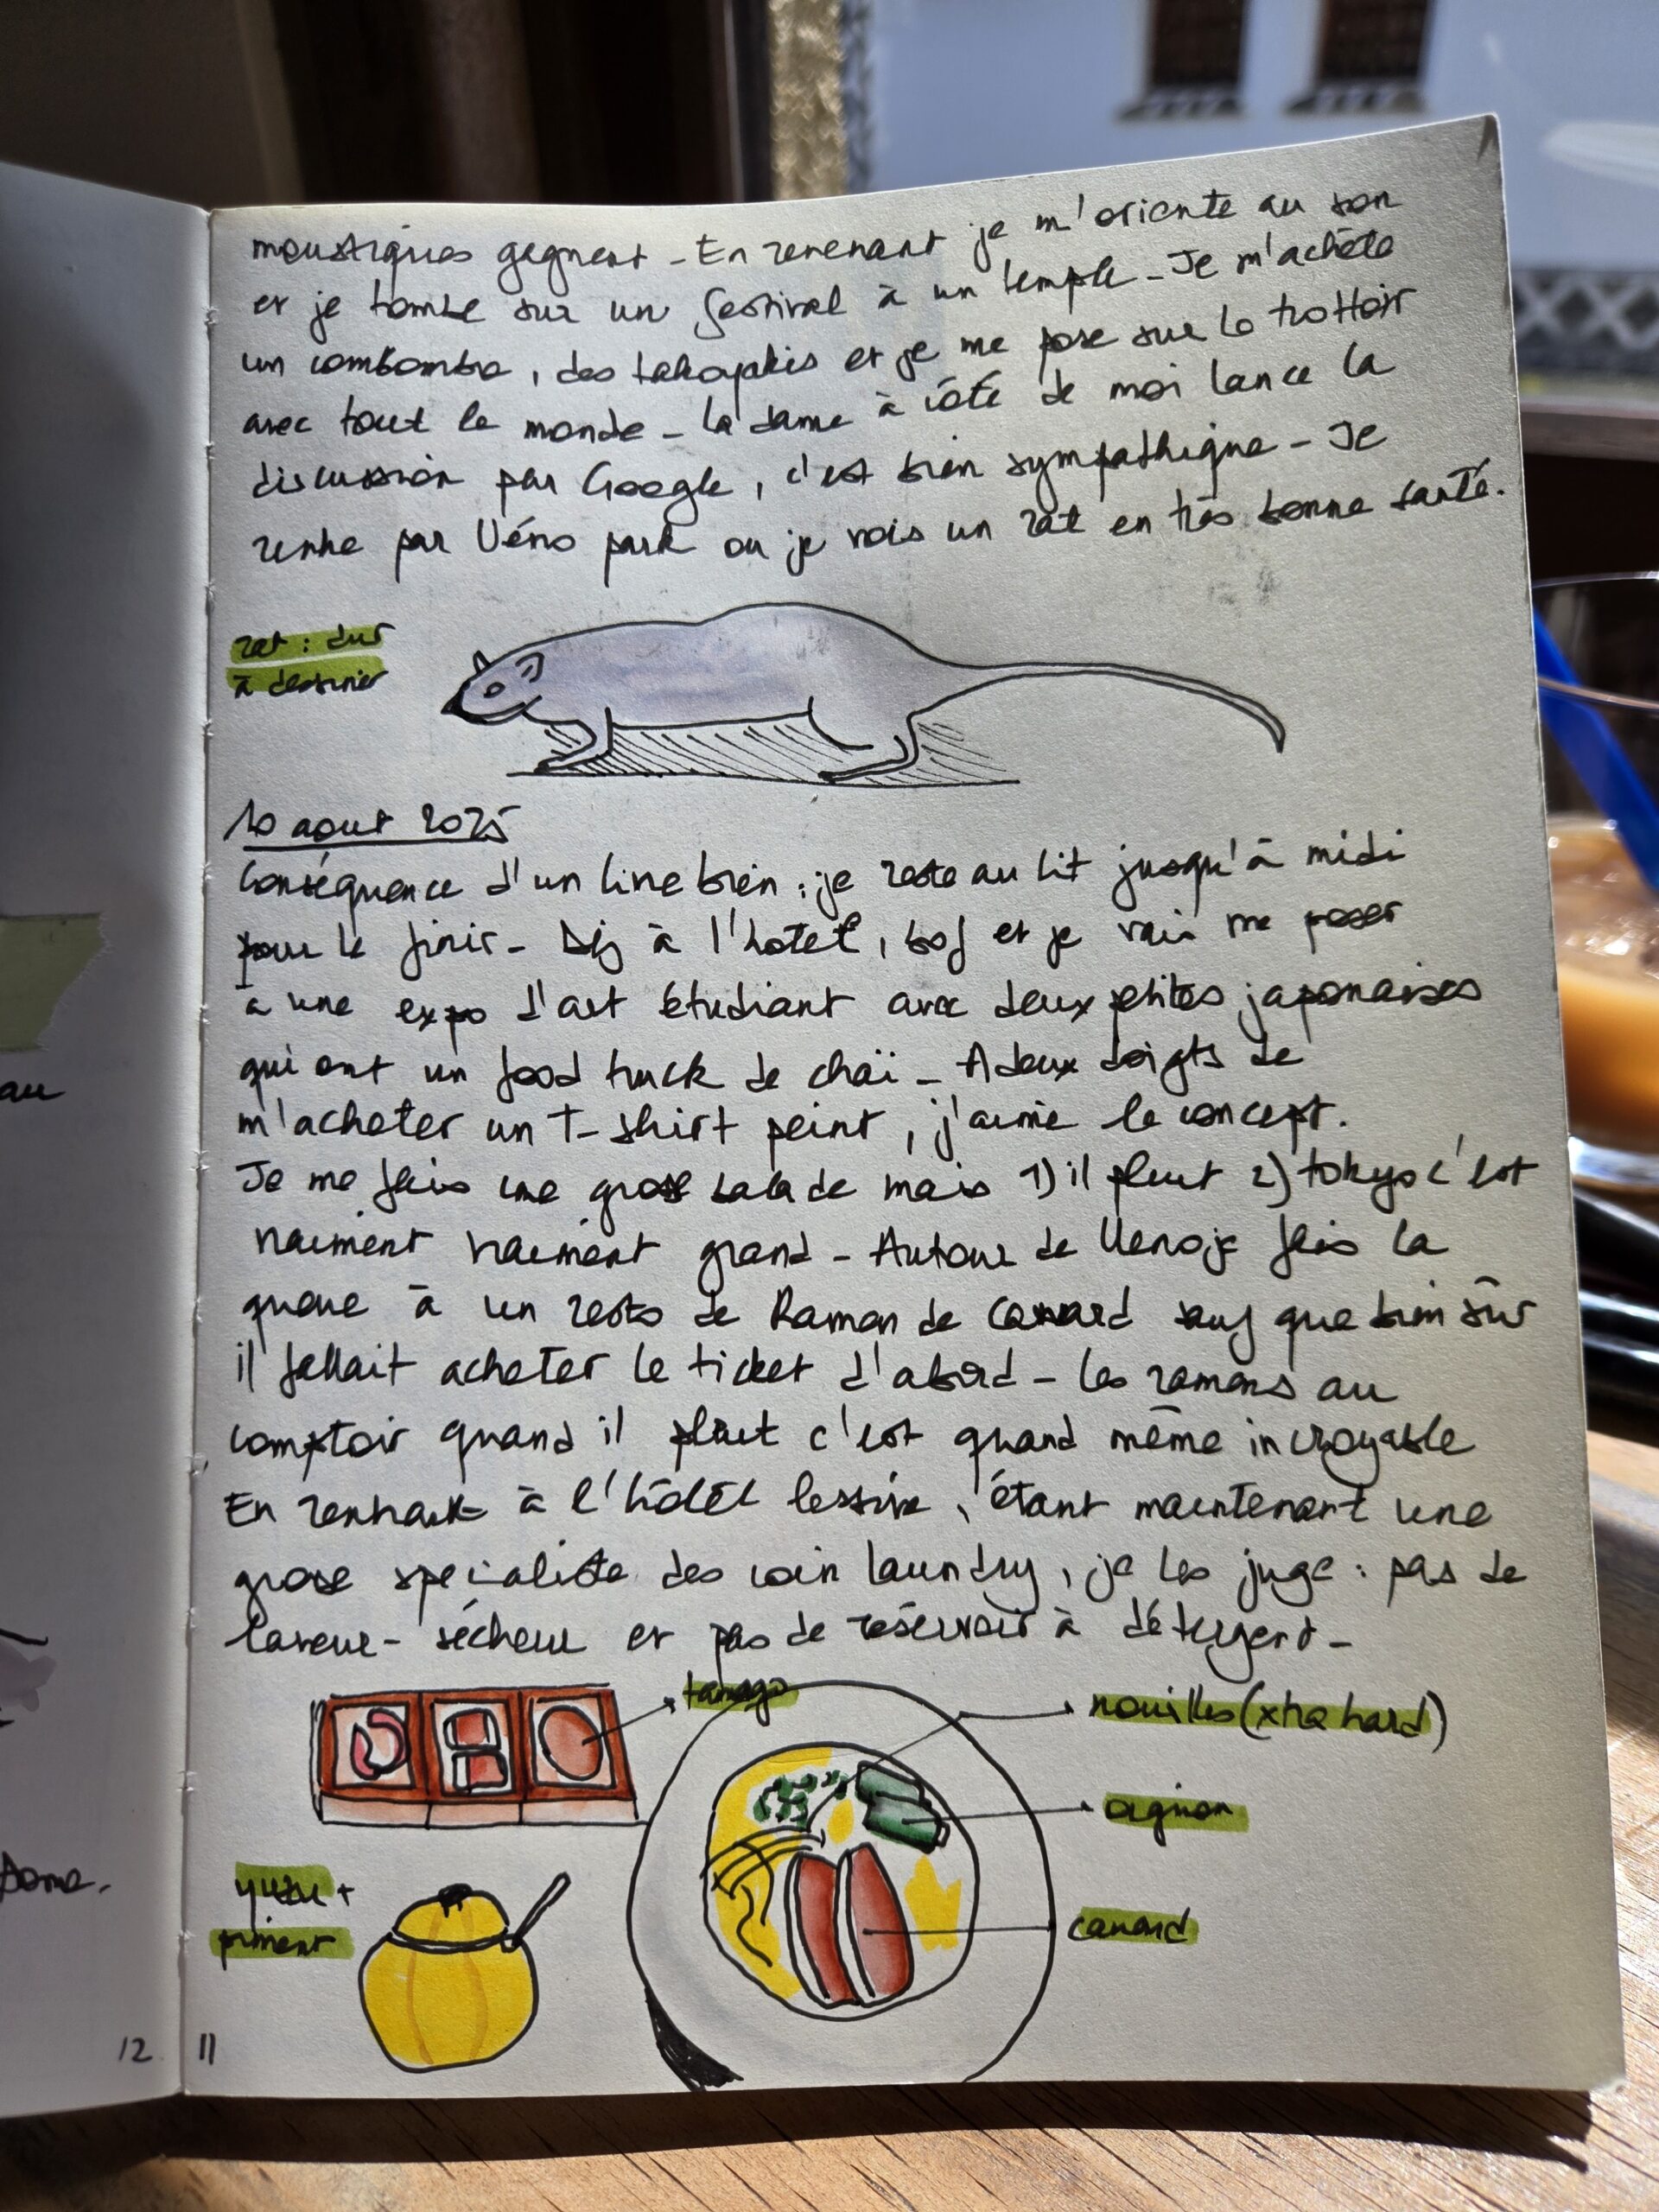 au
Dome.
12
moustiques gagnent - En revenant je m'oriente au son
et je tombe sur un festival à un temple - Je m'achète
un concombre, des takoyakis et je me pose sur le trottoir
avec tout le monde - la dame à côté de moi lance la
discussion par Google, c'est bien sympathique - Je
rentre par Uéno park ou je vois un rat en très bonne santé.
rat : dur
à dessiner
10 aout 2025
Conséquence d'un livre bien : je reste au lit jusqu'à midi
pour le finir - Dej à l'hotel, bof et je vais me poser
à une expo d'art étudiant avec deux petites japonaises
qui ont un food truck de chaï - A deux doigts de
m'acheter un T-shirt peint, j'aime le concept.
Je me fais une grosse balade mais 1) il pleut 2) tokyo c'est
vraiment vraiment grand - Autour de Ueno je fais la
queue à un resto de Ramen de canard sauf que bien sûr
il fallait acheter le ticket d'abord - les ramens au
comptoir quand il pleut c'est quand même incroyable
En rentrant à l'hôtel lessive, étant maintenant une
grosse spécialiste des coin laundry, je les juge : pas de
laveur-sécheur et pas de réservoir à détergent -
tamago
nouilles (xtra hard)
oignon
yuzu +
piment
canard
11